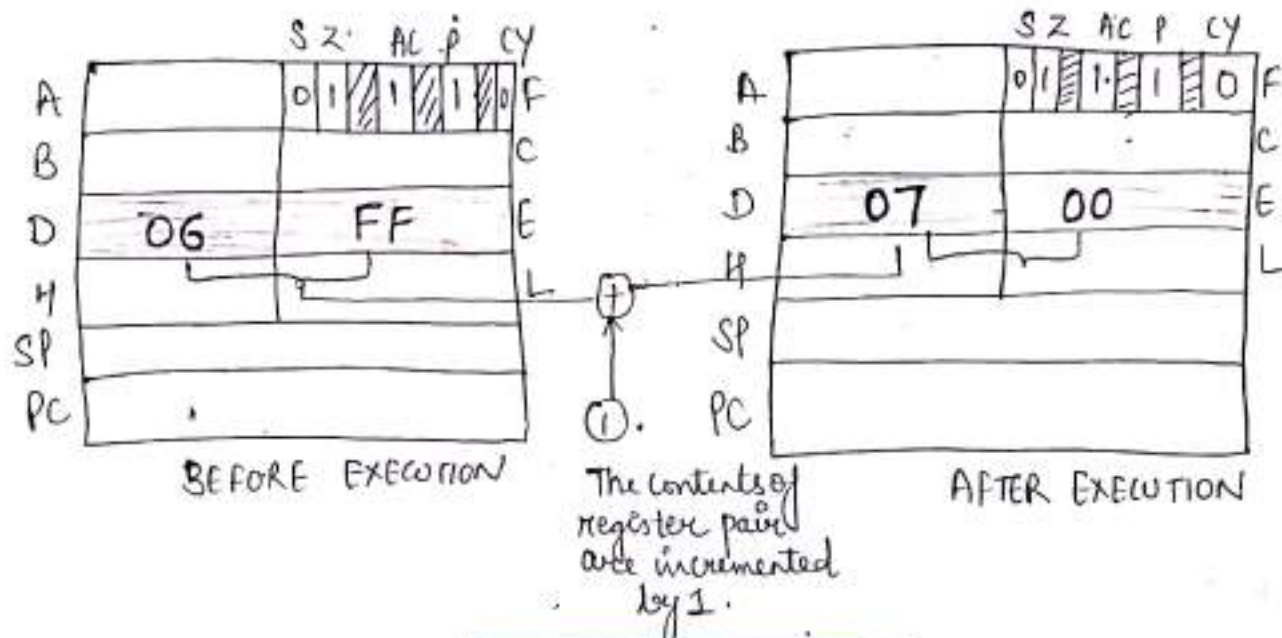 S Z AC P CY
A 0 1 1 1 0 F
B C
D 06 FF E
H L
SP
PC
BEFORE EXECUTION
+
1
The contents of
register pair
are incremented
by 1.
S Z AC P CY
A 0 1 1 1 0 F
B C
D 07 00 E
H L
SP
PC
AFTER EXECUTION